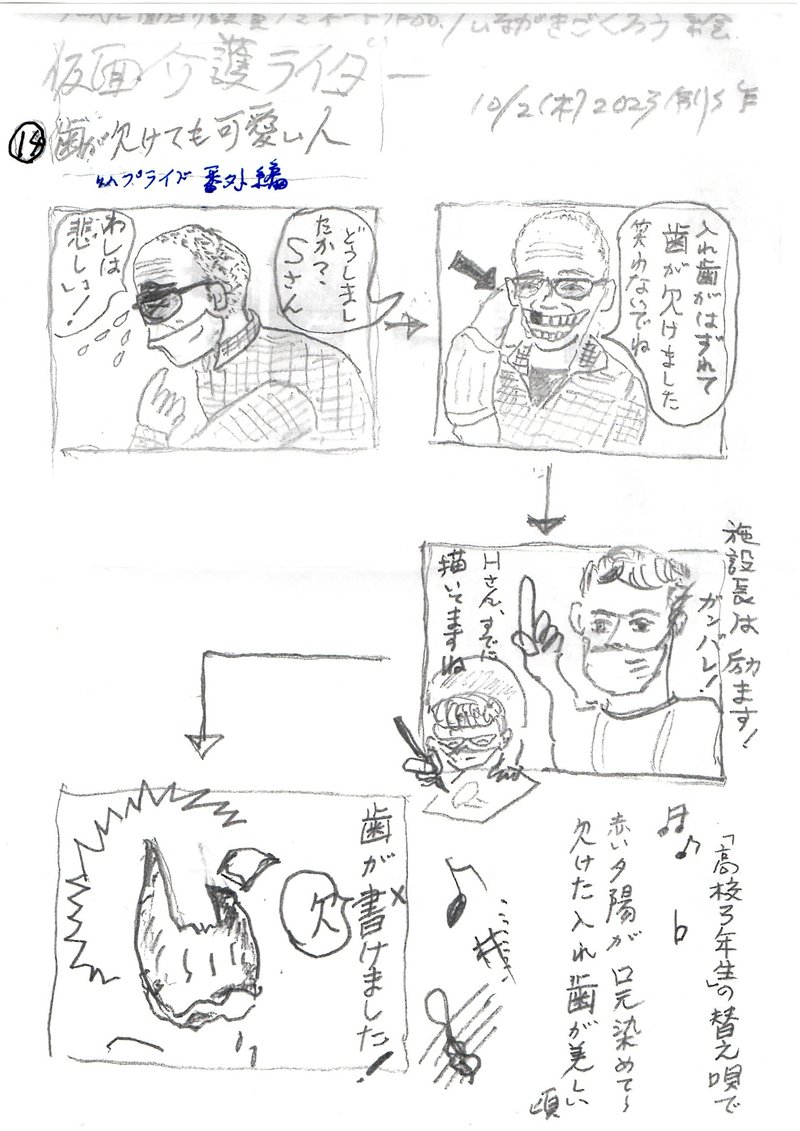 いながきごくろう お会
仮面介護ライダー
10/2(木)2025
⑭歯が欠けても可愛い人
サプライズ番外編
どうしまし
たか?
Sさん
わしは
悲しい!
入れ歯がはずれて
歯が欠けました
笑わないでね
施設長は励ます!
ガンバレ!
Hさん、すでに
描いてますね
歯が書けました!
欠
「高校3年生」の替え唄で
赤い夕陽が口元染めて~
欠けた入れ歯が美しい
頃